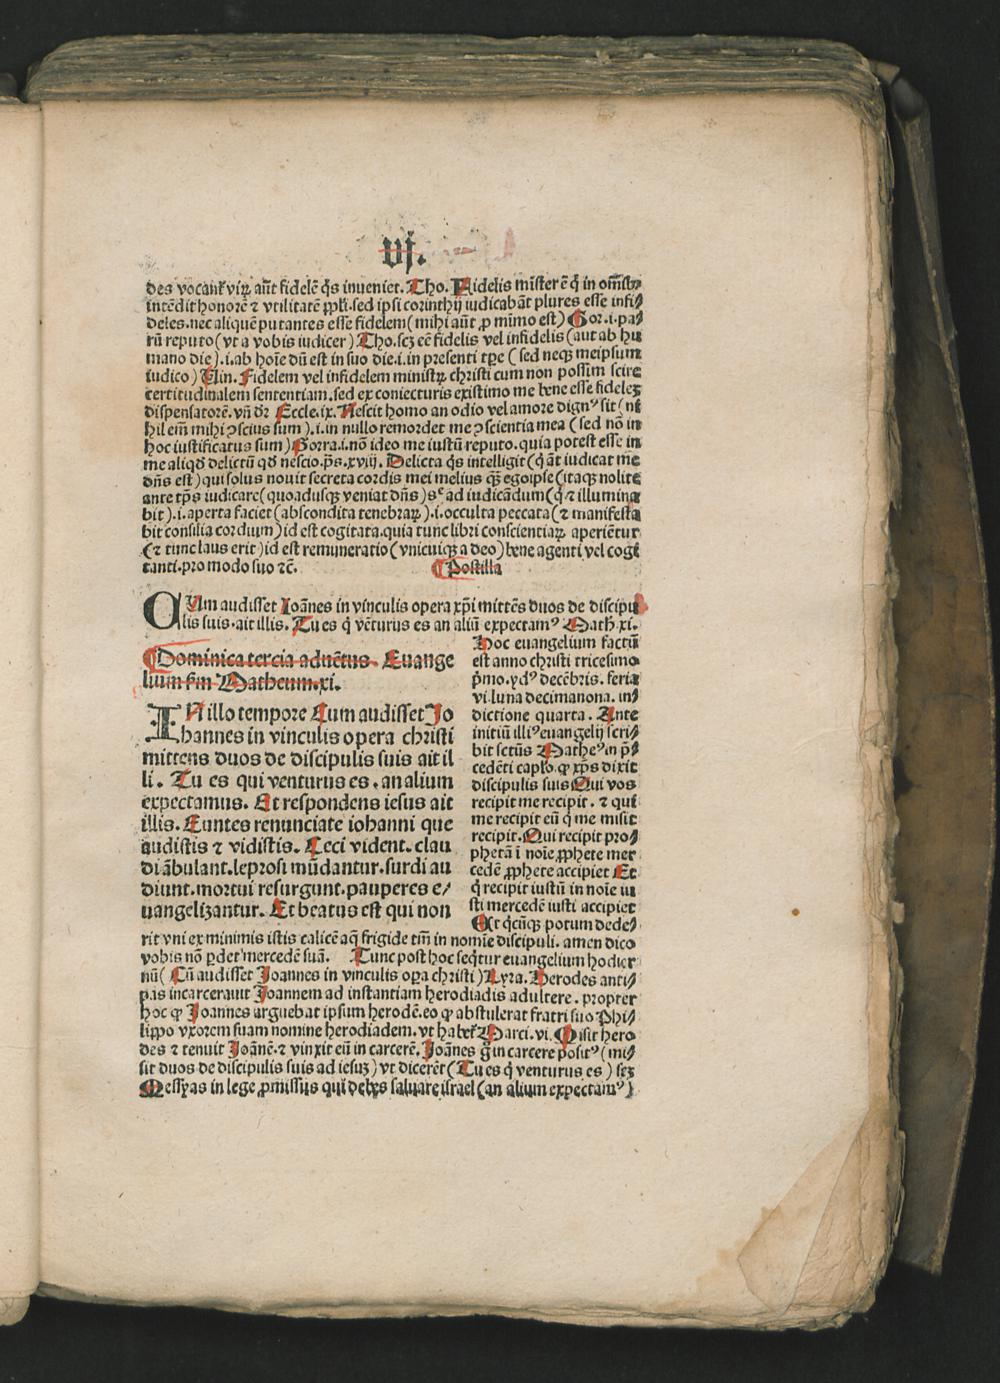 vj.
des vocant̃ viꝝ aūt fidelē q̄s inueniet. Tho. Fidelis mīster ē q̄ in om̄ib⁹
intēdit honorē ⁊ vtilitatē ꝓpli. sed ipsi corinthij iudicabāt plures esse infi⸗
deles. nec aliquē putantes esse fidelem (mihi aūt ꝓ mīmo est) Gor. i. pa⸗
rū reputo (vt a vobis iudicer) Tho. scꝫ eē fidelis vel infidelis (aut ab hu
mano die). i. ab hoīe dū est in suo die. i. in presenti tp̄e (sed neqꝫ meipsum
iudico) Lin. Fidelem vel infidelem ministꝝ christi cum non possim scire
certitudinalem sententiam. sed ex coniecturis existimo me bene esse fidelez
dispensatorē. vn̄ dr̄ Eccle. ix. Nescit homo an odio vel amore dign⁹ sit (ni
hil em̄ mihi ꝯscius sum). i. in nullo remordet me ꝯscientia mea (sed nō in
hoc iustificatus sum) Gorra. i. nō ideo me iustū reputo. quia potest esse in
me aliqḋ delictū qḋ nescio. p̄s. xviij. Delicta q̄s intelligit (q̄ āt iudicat me
dn̄s est) qui solus nouit secreta cordis mei melius q̄ꝫ egoipse (itaqꝫ nolite
ante tp̄s iudicare (quoadusqꝫ veniat dn̄s) sᶜ ad iudicādum (q̄ ⁊ illumina
bit). i. aperta faciet (abscondita tenebraꝝ). i. occulta peccata (⁊ manifesta
bit consilia cordium) id est cogitata. quia tunc libri conscientiaꝝ aperiētur
(⁊ tunc laus erit) id est remuneratio (vnicuiqꝫ a deo) bene agenti vel cogi
tanti. pro modo suo ⁊c. ¶Postilla
CUm audisset Ioānes in vinculis opera xp̄i mittēs duos de discipu
lis suis. ait illis. Tu es q̄ vēturus es an aliū expectam⁹ Math. xi.
¶Dominica tercia aduētus. Euange
lium fm̄ Matheum. xi.
IN illo tempore Cum audisset Jo
hannes in vinculis opera christi
mittens duos de discipulis suis ait il
li. Tu es qui venturus es. an alium
expectamus. Et respondens iesus ait
illis. Euntes renunciate iohanni que
audistis ⁊ vidistis. Ceci vident. clau
di ābulant. leprosi mūdantur. surdi au
diunt. mortui resurgunt. pauperes e⸗
uangelizantur. Et beatus est qui non
Hoc euangelium factū
est anno christi tricesimo
p̄mo. yd⁹ decēbris. feria
vi. luna decimanona. in⸗
dictione quarta. Ante
initiū illi⁹ euangelij scri⸗
bit sctūs Mathe⁹ in p̄⸗
cedēti capło. ꝙ xp̄s dixit
discipulis suis Qui vos
recipit me recipit. ⁊ qui
me recipit eū q̄ me misit
recipit. Qui recipit pro⸗
phetā ī noīe ꝓphete mer
cedē ꝓphete accipiet Et
q̄ recipit iustū in noīe iu
sti mercedē iusti accipiet
Et q̄cūqꝫ potum dede⸗
rit vni ex minimis istis calicē aq̄ frigide tm̄ in nomīe discipuli. amen dico
vobis nō ꝑdet mercedē suā. Tunc post hoc seq̄tur euangelium hodier
nū (Cū audisset Joannes in vinculis oꝑa christi) Lyra. Herodes anti⸗
pas incarcerauit Joannem ad instantiam herodiadis adultere. propter
hoc ꝙ Joannes arguebat ipsum herodē. eo ꝙ abstulerat fratri suo Phi⸗
lippo vxorem suam nomine herodiadem. vt habet̃ Marci. vi. Misit hero
des ⁊ tenuit Joānē. ⁊ vinxit eū in carcerē. Joānes g̊ in carcere posit⁹ (mi⸗
sit duos de discipulis suis ad iesuꝫ) vt dicerēt (Tu es q̄ venturus es) scꝫ
Messyas in lege ꝓmissus qui debes saluare israel (an alium expectam⁹)